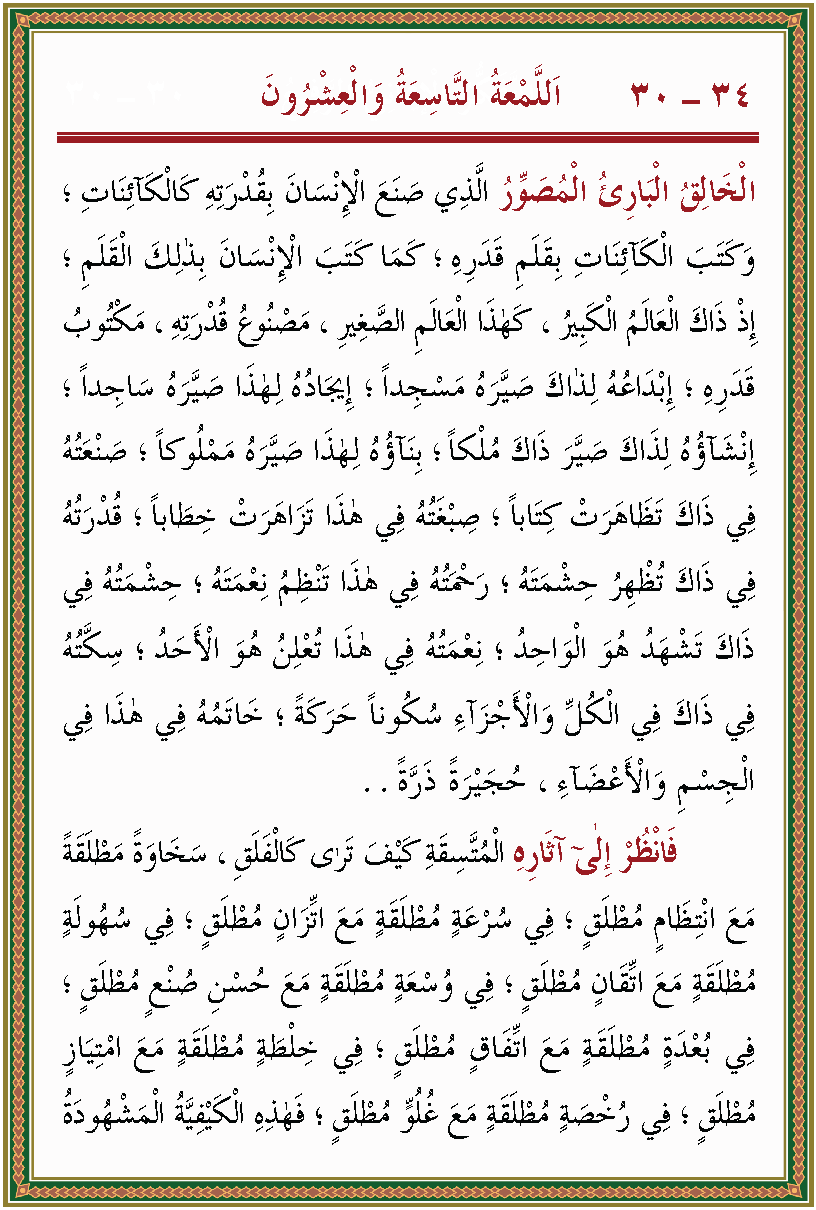 ٣٤ – ٣٠ اَللَّمْعَةُ التَّاسِعَةُ وَالْعِشْرُونَ
الْخَالِقُ الْبَارِئُ الْمُصَوِّرُ الَّذِي صَنَعَ الْإِنْسَانَ بِقُدْرَتِهِ كَالْكَآئِنَاتِ ؛
وَكَتَبَ الْكَآئِنَاتِ بِقَلَمِ قَدَرِهِ ؛ كَمَا كَتَبَ الْإِنْسَانَ بِذٰلِكَ الْقَلَمِ ؛
إِذْ ذَاكَ الْعَالَمُ الْكَبِيرُ ، كَهٰذَا الْعَالَمِ الصَّغِيرِ ، مَصْنُوعُ قُدْرَتِهِ ، مَكْتُوبُ
قَدَرِهِ ؛ إِبْدَاعُهُ لِذٰاكَ صَيَّرَهُ مَسْجِداً ؛ إِيجَادُهُ لِهٰذَا صَيَّرَهُ سَاجِداً ؛
إِنْشَآؤُهُ لِذَاكَ صَيَّرَ ذَاكَ مُلْكاً ؛ بِنَآؤُهُ لِهٰذَا صَيَّرَهُ مَمْلُوكاً ؛ صَنْعَتُهُ
فِي ذَاكَ تَظَاهَرَتْ كِتَاباً ؛ صِبْغَتُهُ فِي هٰذَا تَزَاهَرَتْ خِطَاباً ؛ قُدْرَتُهُ
فِي ذَاكَ تُظْهِرُ حِشْمَتَهُ ؛ رَحْمَتُهُ فِي هٰذَا تَنْظِمُ نِعْمَتَهُ ؛ حِشْمَتُهُ فِي
ذَاكَ تَشْهَدُ هُوَ الْوَاحِدُ ؛ نِعْمَتُهُ فِي هٰذَا تُعْلِنُ هُوَ الْأَحَدُ ؛ سِكَّتُهُ
فِي ذَاكَ فِي الْكُلِّ وَالْأَجْزَآءِ سُكُوناً حَرَكَةً ؛ خَاتَمُهُ فِي هٰذَا فِي
الْجِسْمِ وَالْأَعْضَآءِ ، حُجَيْرَةً ذَرَّةً . .
فَانْظُرْ إِلٰىٓ آثَارِهِ الْمُتَّسِقَةِ كَيْفَ تَرٰى كَالْفَلَقِ ، سَخَاوَةً مَطْلَقَةً
مَعَ انْتِظَامٍ مُطْلَقٍ ؛ فِي سُرْعَةٍ مُطْلَقَةٍ مَعَ اتِّزَانٍ مُطْلَقٍ ؛ فِي سُهُولَةٍ
مُطْلَقَةٍ مَعَ اتِّقَانٍ مُطْلَقٍ ؛ فِي وُسْعَةٍ مُطْلَقَةٍ مَعَ حُسْنِ صُنْعٍ مُطْلَقٍ ؛
فِي بُعْدَةٍ مُطْلَقَةٍ مَعَ اتِّفَاقٍ مُطْلَقٍ ؛ فِي خِلْطَةٍ مُطْلَقَةٍ مَعَ امْتِيَازٍ
مُطْلَقٍ ؛ فِي رُخْصَةٍ مُطْلَقَةٍ مَعَ غُلُوٍّ مُطْلَقٍ ؛ فَهٰذِهِ الْكَيْفِيَّةُ الْمَشْهُودَةُ